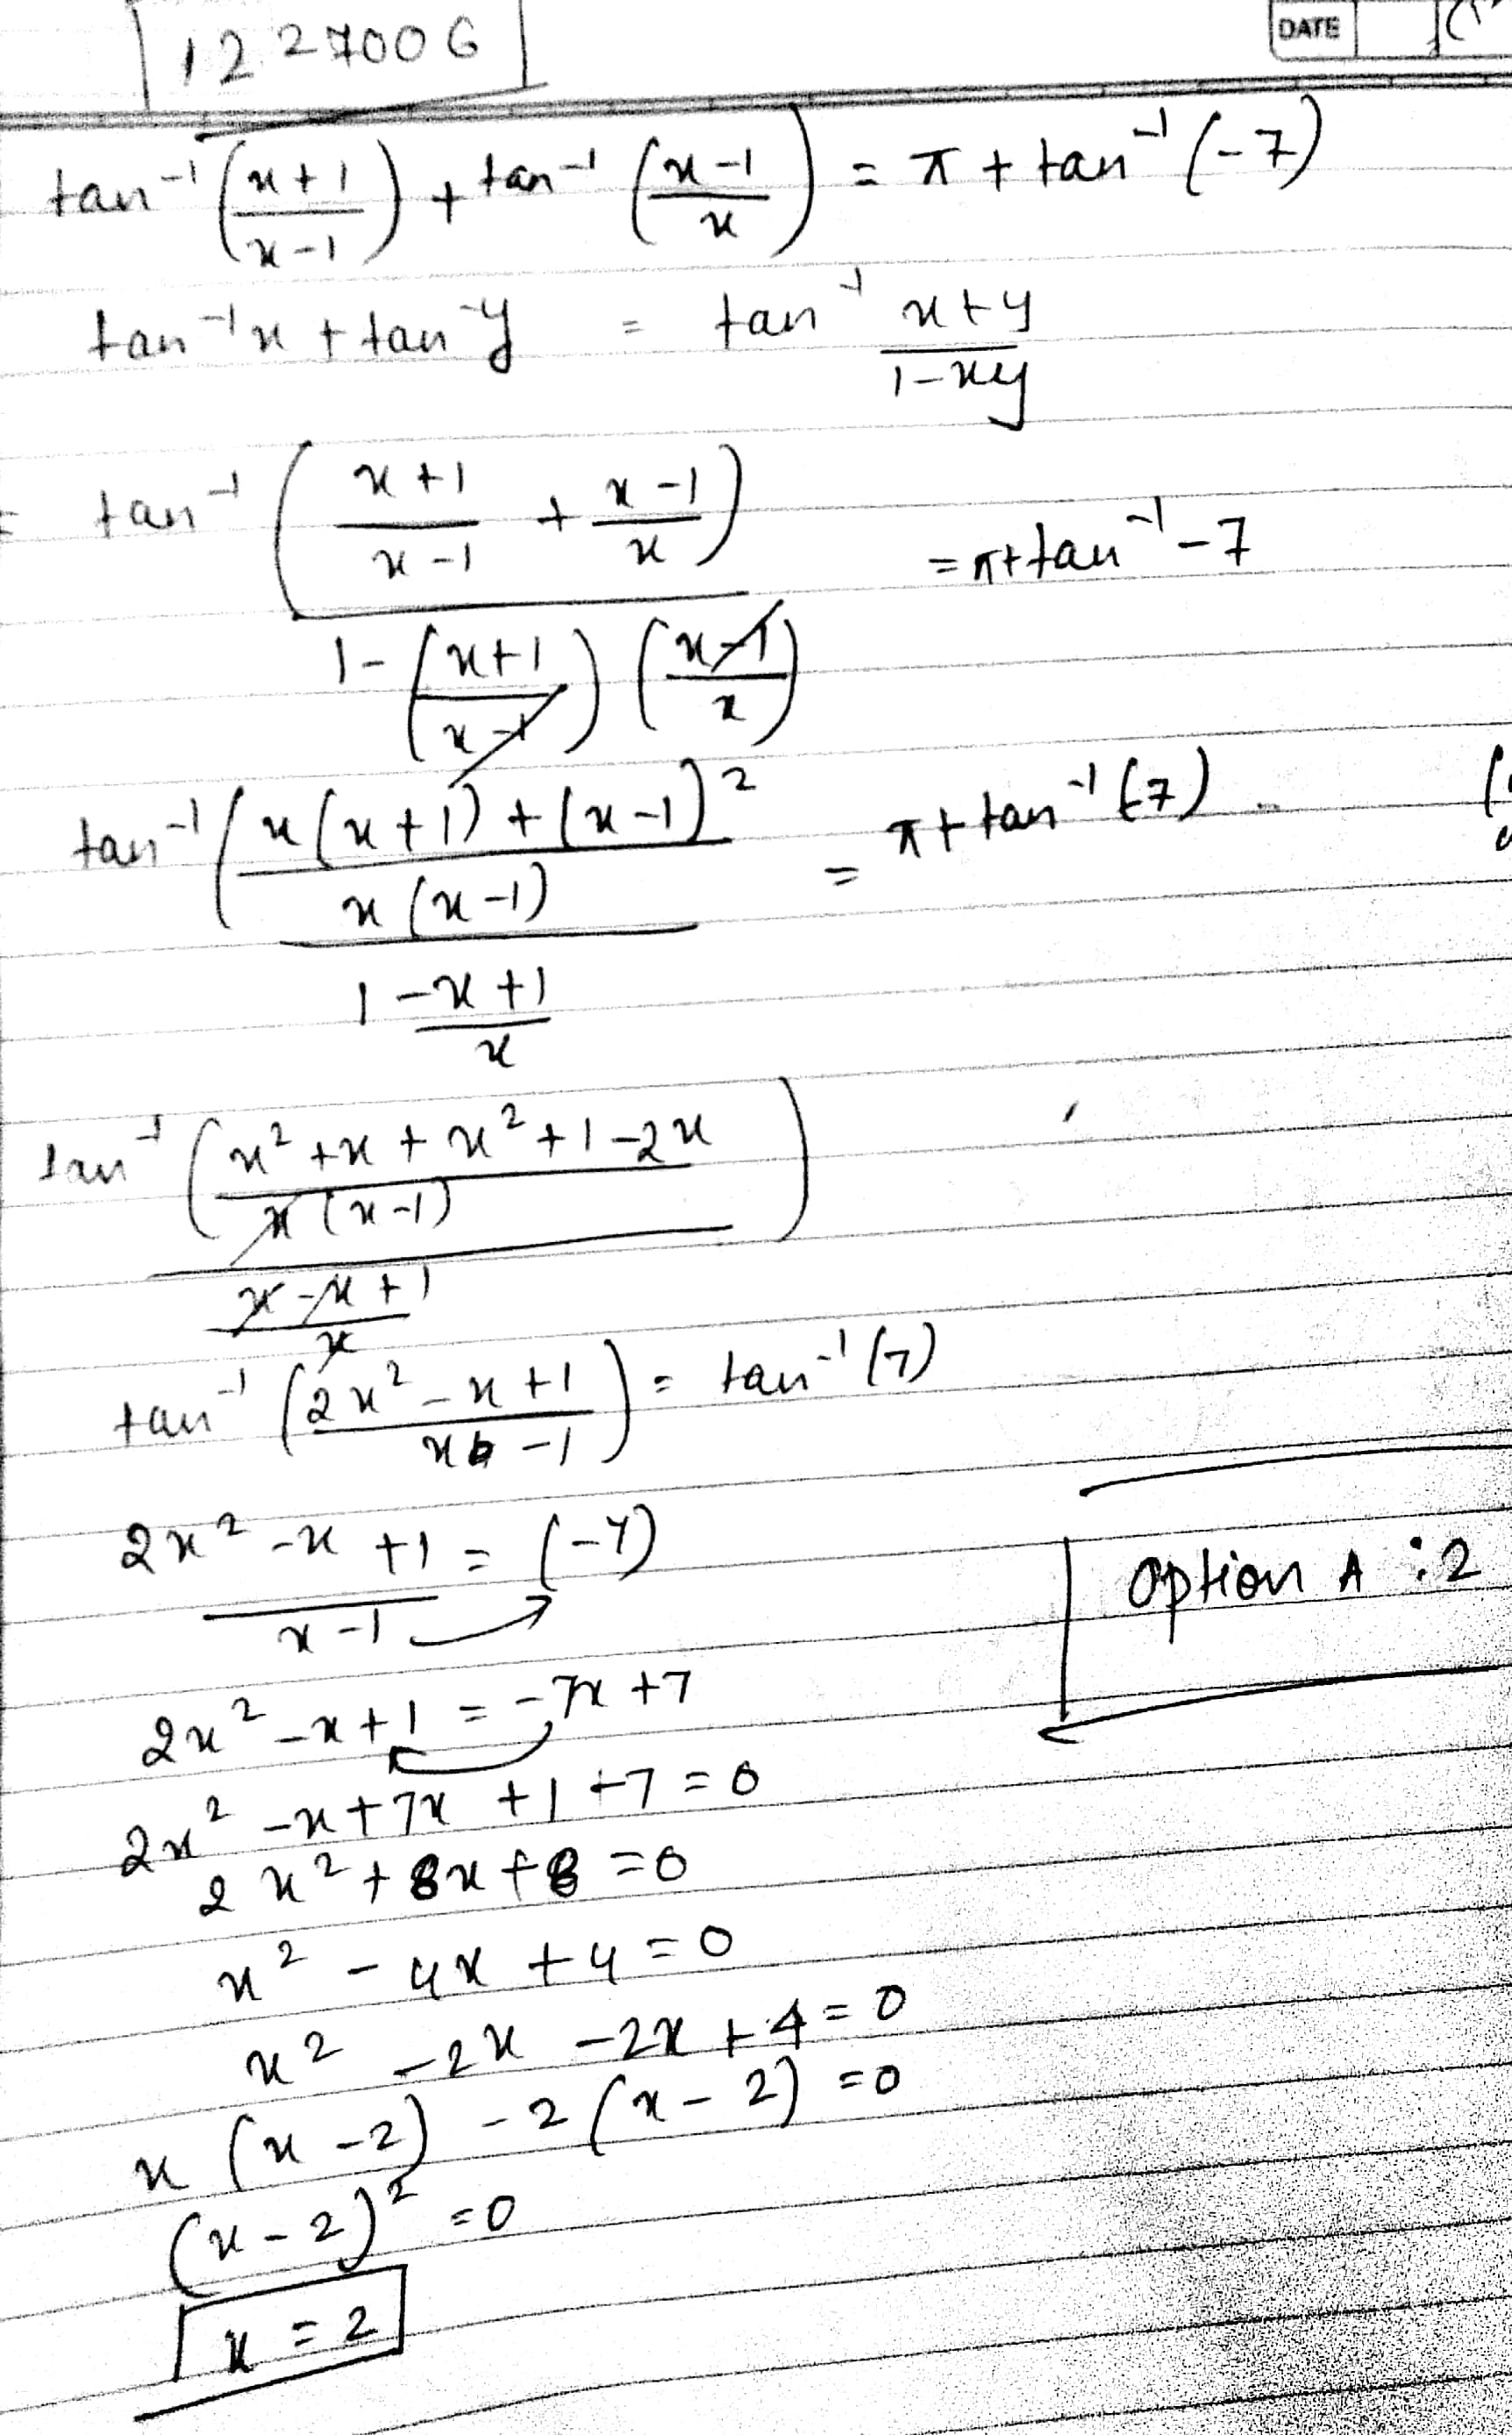 1227006
DATE
tan⁻¹ ((x+1)/(x-1)) + tan⁻¹ ((x-1)/x) = π + tan⁻¹ (-7)
tan⁻¹x + tan⁻¹y = tan⁻¹ (x+y)/(1-xy)
= tan⁻¹ ((x+1)/(x-1) + (x-1)/x) / (1-((x+1)/(x-1)) ((x-1)/x)) = π + tan⁻¹ -7
tan⁻¹ ((x(x+1) + (x-1)²)/(x(x-1))) / (1 (-x+1)/x) = π + tan⁻¹ (-7)
tan⁻¹ ((x² + x + x² + 1 - 2x)/(x(x-1))) / ((x - x + 1)/x)
tan⁻¹ ((2x² - x + 1)/(x -1)) = tan⁻¹ (7)
(2x² - x + 1)/(x - 1) = (-7)
Option A : 2
2x² - x + 1 = -7x + 7
2x² - x + 7x + 1 + 7 = 0
2x² + 8x + 8 = 0
x² - 4x + 4 = 0
x² - 2x - 2x + 4 = 0
x (x - 2) - 2 (x - 2) = 0
(x - 2)² = 0
x = 2